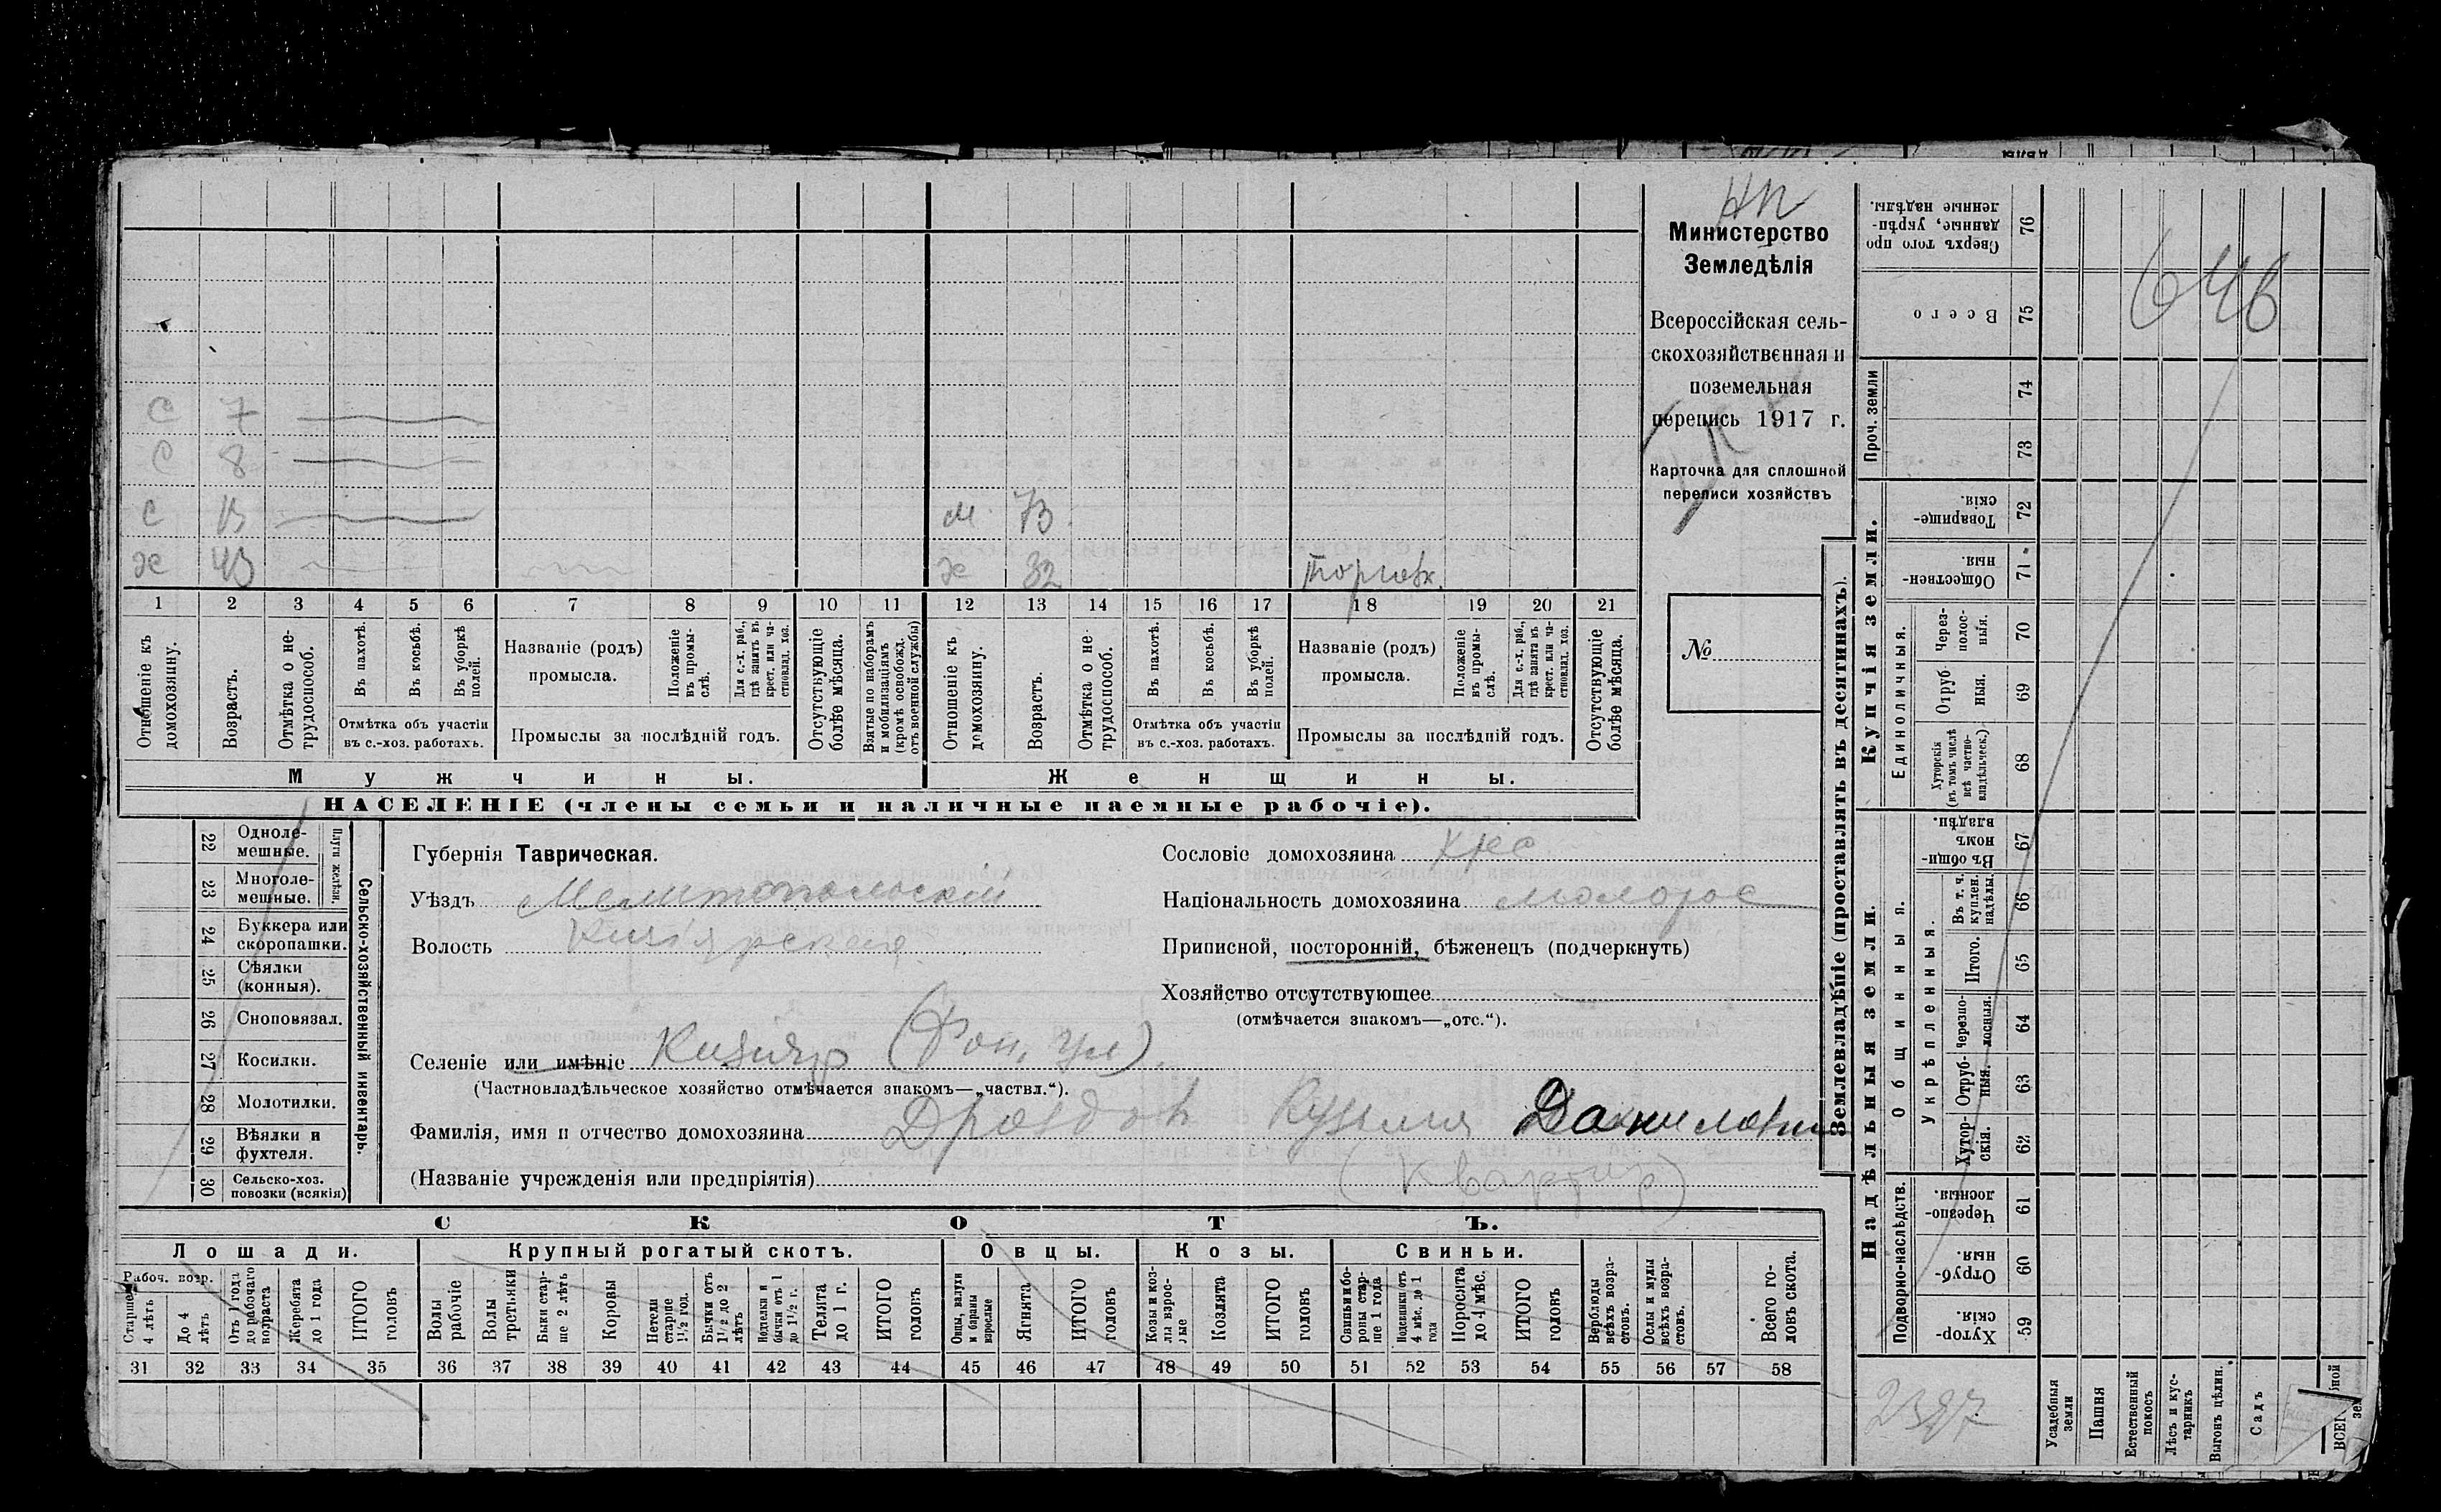 НП
Министерство
Земледѣлія
Всероссійская сель-
скохозяйственная и
поземельная
перепись 1917 г.
Карточка для сплошной
переписи хозяйствъ
№
С 7
С 8
С 13
м. 73
х 43
х 32 торговк.
1 2 3 4 5 6 7 8 9 10 11 12 13 14 15 16 17 18 19 20 21
Отношеніе къ домохозяину.
Возрастъ.
Отмѣтка о не-трудоспособ.
Въ пахотѣ.
Въ косьбѣ.
Въ уборкѣ полей.
Отмѣтка объ участіи
въ с.-хоз. работахъ.
Названіе (родъ)
промысла.
Положеніе въ промы-слѣ.
Для с.-х. раб., гдѣ занятъ въ крест. или ча-стновлад. хоз.
Промыслы за послѣдній годъ.
Отсутствующіе болѣе мѣсяца.
Взятые по наборамъ и мобилизаціямъ (кромѣ освобожд. отъ военной службы)
Отношеніе къ домохозяину.
Возрастъ.
Отмѣтка о не-трудоспособ.
Въ пахотѣ.
Въ косьбѣ.
Въ уборкѣ полей.
Отмѣтка объ участіи
въ с.-хоз. работахъ.
Названіе (родъ)
промысла.
Положеніе въ промы-слѣ.
Для с.-х. раб., гдѣ занята въ крест. или ча-стновлад. хоз.
Промыслы за послѣдній годъ.
Отсутствующіе болѣе мѣсяца.
Мужчины.
Женщины.
НАСЕЛЕНІЕ (члены семьи и наличные наемные рабочіе).
22 Одноле-мешные.
23 Многоле-мешные.
Плуги желѣзн.
24 Буккера или скоропашки.
25 Сѣялки (конныя).
26 Сноповязал.
27 Косилки.
28 Молотилки.
29 Вѣялки и фухтеля.
30 Сельско-хоз. повозки (всякія)
Сельско-хозяйственный инвентарь.
Губернія Таврическая.
Уѣздъ Мелитопольскій
Волость Кизіярская
Сословіе домохозяина крес
Національность домохозяина малорос
Приписной, посторонній, бѣженецъ (подчеркнуть)
Хозяйство отсутствующее
(отмѣчается знакомъ—„отс.“).
Селеніе или имѣніе Кизіяр (Фон, ул).
(Частновладѣльческое хозяйство отмѣчается знакомъ—„частвл.“).
Фамилія, имя и отчество домохозяина Дроздов Кузьма Данилович
(Названіе учрежденія или предпріятія) (Квартир)
СКОТЪ.
Лошади.
Крупный рогатый скотъ.
Овцы.
Козы.
Свиньи.
Рабоч. возр.
Старше 4 лѣтъ
До 4 лѣтъ
Отъ 1 года до рабочаго возраста
Жеребята до 1 года
ИТОГО головъ
Волы рабочіе
Волы третьяки
Быки стар-ше 2 лѣтъ
Коровы
Нетели старше 1½ год.
Бычки отъ 1½ до 2 лѣтъ
Подтелки и бычки отъ 1 до 1½ г.
Телята до 1 г.
ИТОГО головъ
Овцы, валухи и бараны взрослые
Ягнята
ИТОГО головъ
Козы и коз-лы взрос-лые
Козлята
ИТОГО головъ
Свиньи и бо-роны стар-ше 1 года
Подсвинки отъ 4 мѣс. до 1 года
Поросята до 4 мѣс.
ИТОГО головъ
Верблюды всѣхъ возра-стовъ.
Ослы и мулы всѣхъ возра-стовъ.
Всего го-ловъ скота.
31 32 33 34 35 36 37 38 39 40 41 42 43 44 45 46 47 48 49 50 51 52 53 54 55 56 57 58
Землевладѣніе (проставлять въ десятинахъ).
646
Сверхъ того про-данные, укрѣп-ленные надѣлы. 76
Всего 75
Проч. земли
74
73
Купчія земли.
Товарище-скія. 72
Обществен-ныя 71
Единоличныя.
Через-полос-ныя. 70
Отруб-ныя. 69
Хуторскія (въ томъ числѣ всѣ частно-владѣльческ.) 68
Надѣльныя земли.
Общинныя.
Въ общин-номъ владѣн. 67
Укрѣпленныя.
Въ т. ч. куплен. надѣлы. 66
Итого. 65
Черезпо-лосныя. 64
Отруб-ныя. 63
Хутор-скія. 62
Подворно-наслѣдств.
Черезпо-лосныя. 61
Отруб-ныя. 60
Хутор-скія. 59
Усадебныя земли
Пашня
Естественный покосъ
Лѣсъ и кус-тарникъ
Выгонъ цѣлин.
Садъ
2397